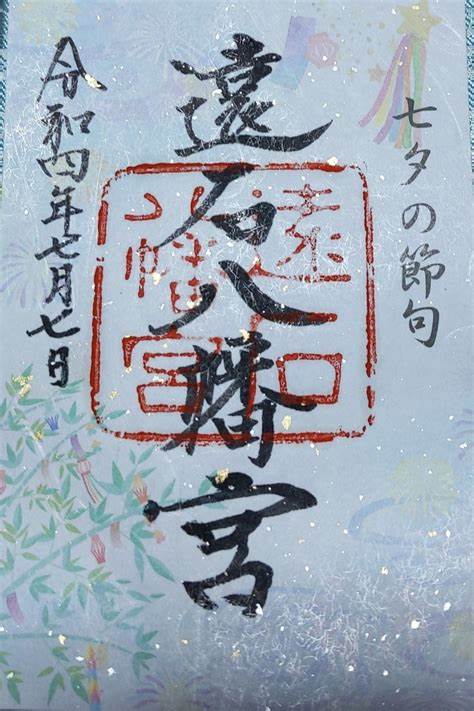 七夕の節句
遠石八幡宮
遠石八幡宮
令和四年七月七日